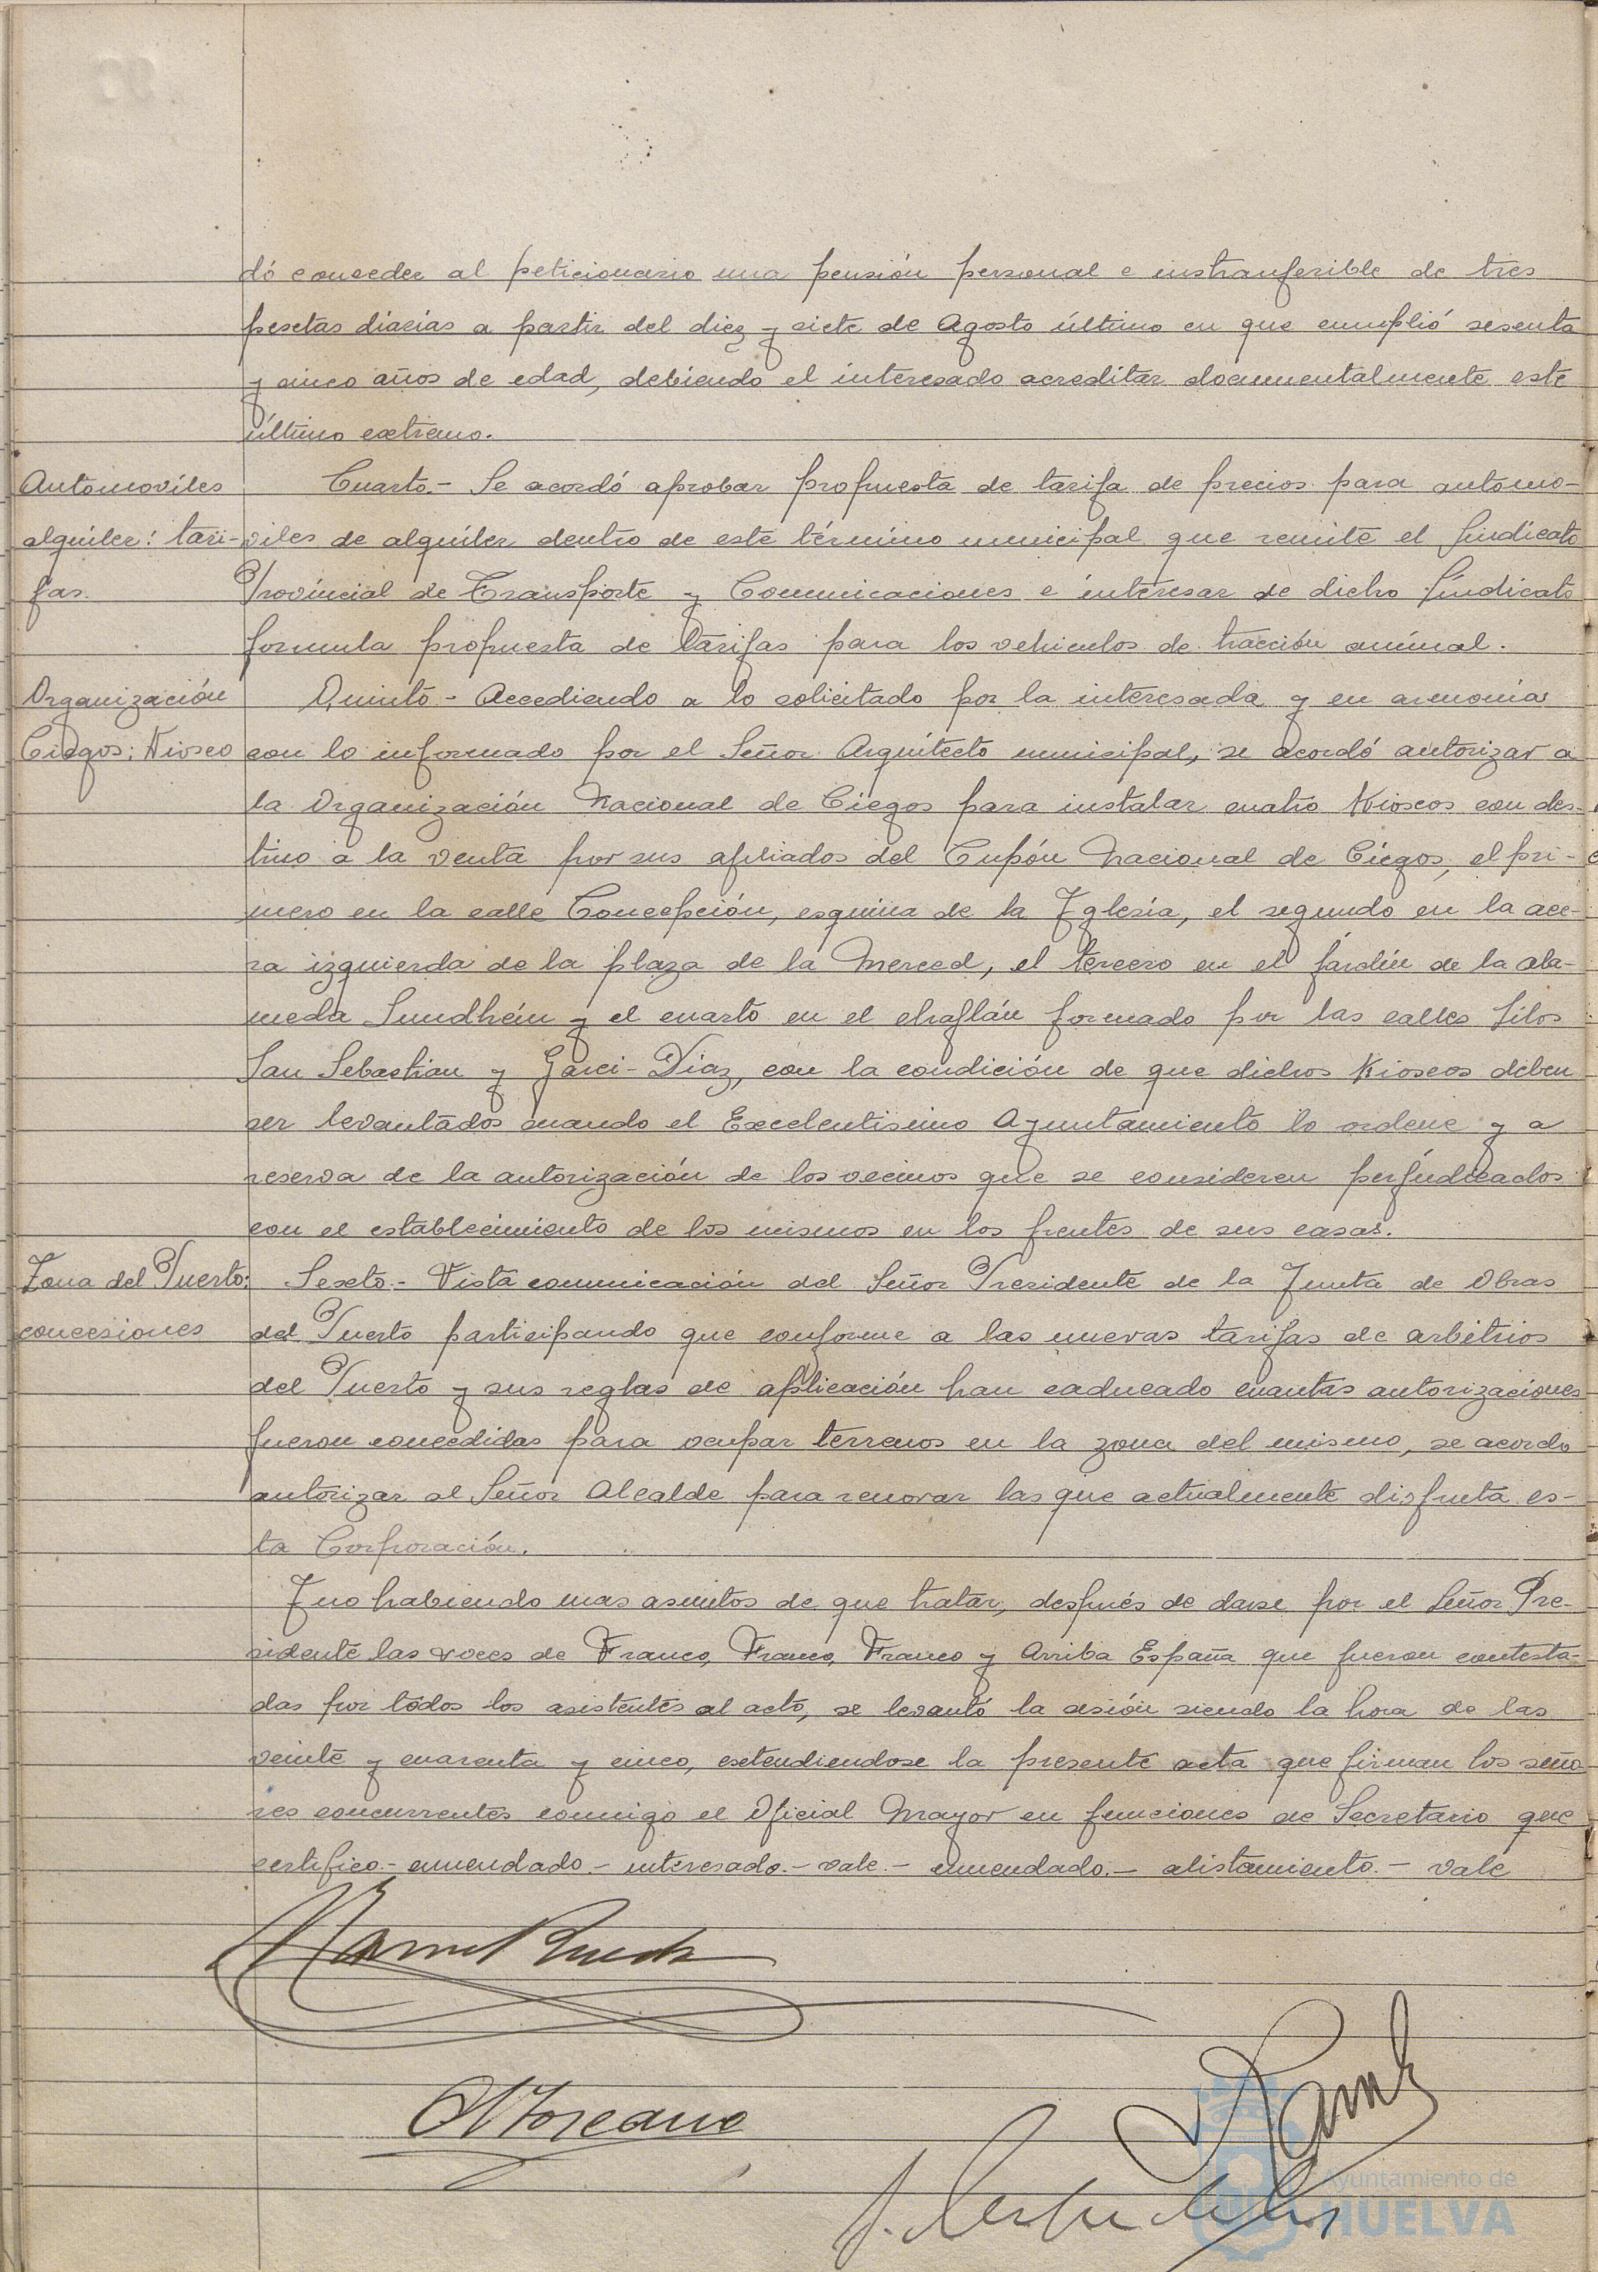 dó conceder al peticionario una pensión personal e instranferible de tres
pesetas diarias a partir del diez y siete de Agosto último en que cumplió sesenta
y cinco años de edad, debiendo el interesado acreditar documentalmente este
último extremo.
Automoviles
alquiler: tari-
fas.
Cuarto.- Se acordó aprobar propuesta de tarifa de precios para automo-
viles de alquiler dentro de este término municipal que remite el Sindicato
Provincial de Transporte y Comunicaciones e interesar de dicho Sindicato
formula propuesta de tarifas para los vehiculos de tracción animal.
Organización
Ciegos: Kiosco
Quinto - Accediendo a lo solicitado por la interesada y en armonia
con lo informado por el Señor Arquitecto municipal, se acordó autorizar a
la Organización Nacional de Ciegos para instalar cuatro Kioscos con des-
tino a la venta por sus afiliados del Cupón Nacional de Ciegos, el pri-
mero en la calle Concepción, esquina de la Iglesia, el segundo en la ace-
ra izquierda de la plaza de la Merced, el tercero en el jardín de la ala-
meda Sundhéin y el cuarto en el chaflán formado por las calles Silos
San Sebastian y Garci-Diaz, con la condición de que dichos Kioscos deben
ser levantados cuando el Excelentisimo Ayuntamiento lo ordene y a
reserva de la autorización de los vecinos que se consideren perjudicados
con el establecimiento de los mismos en los frentes de sus casas.
Zona del Puerto:
concesiones
Sexto.- Vista comunicación del Señor Presidente de la Junta de Obras
del Puerto participando que conforme a las nuevas tarifas de arbitrios
del Puerto y sus reglas de aplicación han caducado cuantas autorizaciones
fueron concedidas para ocupar terrenos en la zona del mismo, se acordo
autorizar al Señor Alcalde para renovar las que actualmente disfruta es-
ta Corporación.
Y no habiendo mas asuntos de que tratar, después de darse por el Señor Pre-
sidente las voces de Franco, Franco, Franco y Arriba España que fueron contesta-
das por todos los asistentes al acto, se levantó la sesión siendo la hora de las
veinte y cuarenta y cinco, extendiendose la presente acta que firman los seño
res concurrentes conmigo el Oficial Mayor en funciones de Secretario que
certifico.- enmendado.- interesado.- vale.- enmendado.- alistamiento.- vale
Ayuntamiento de
HUELVA